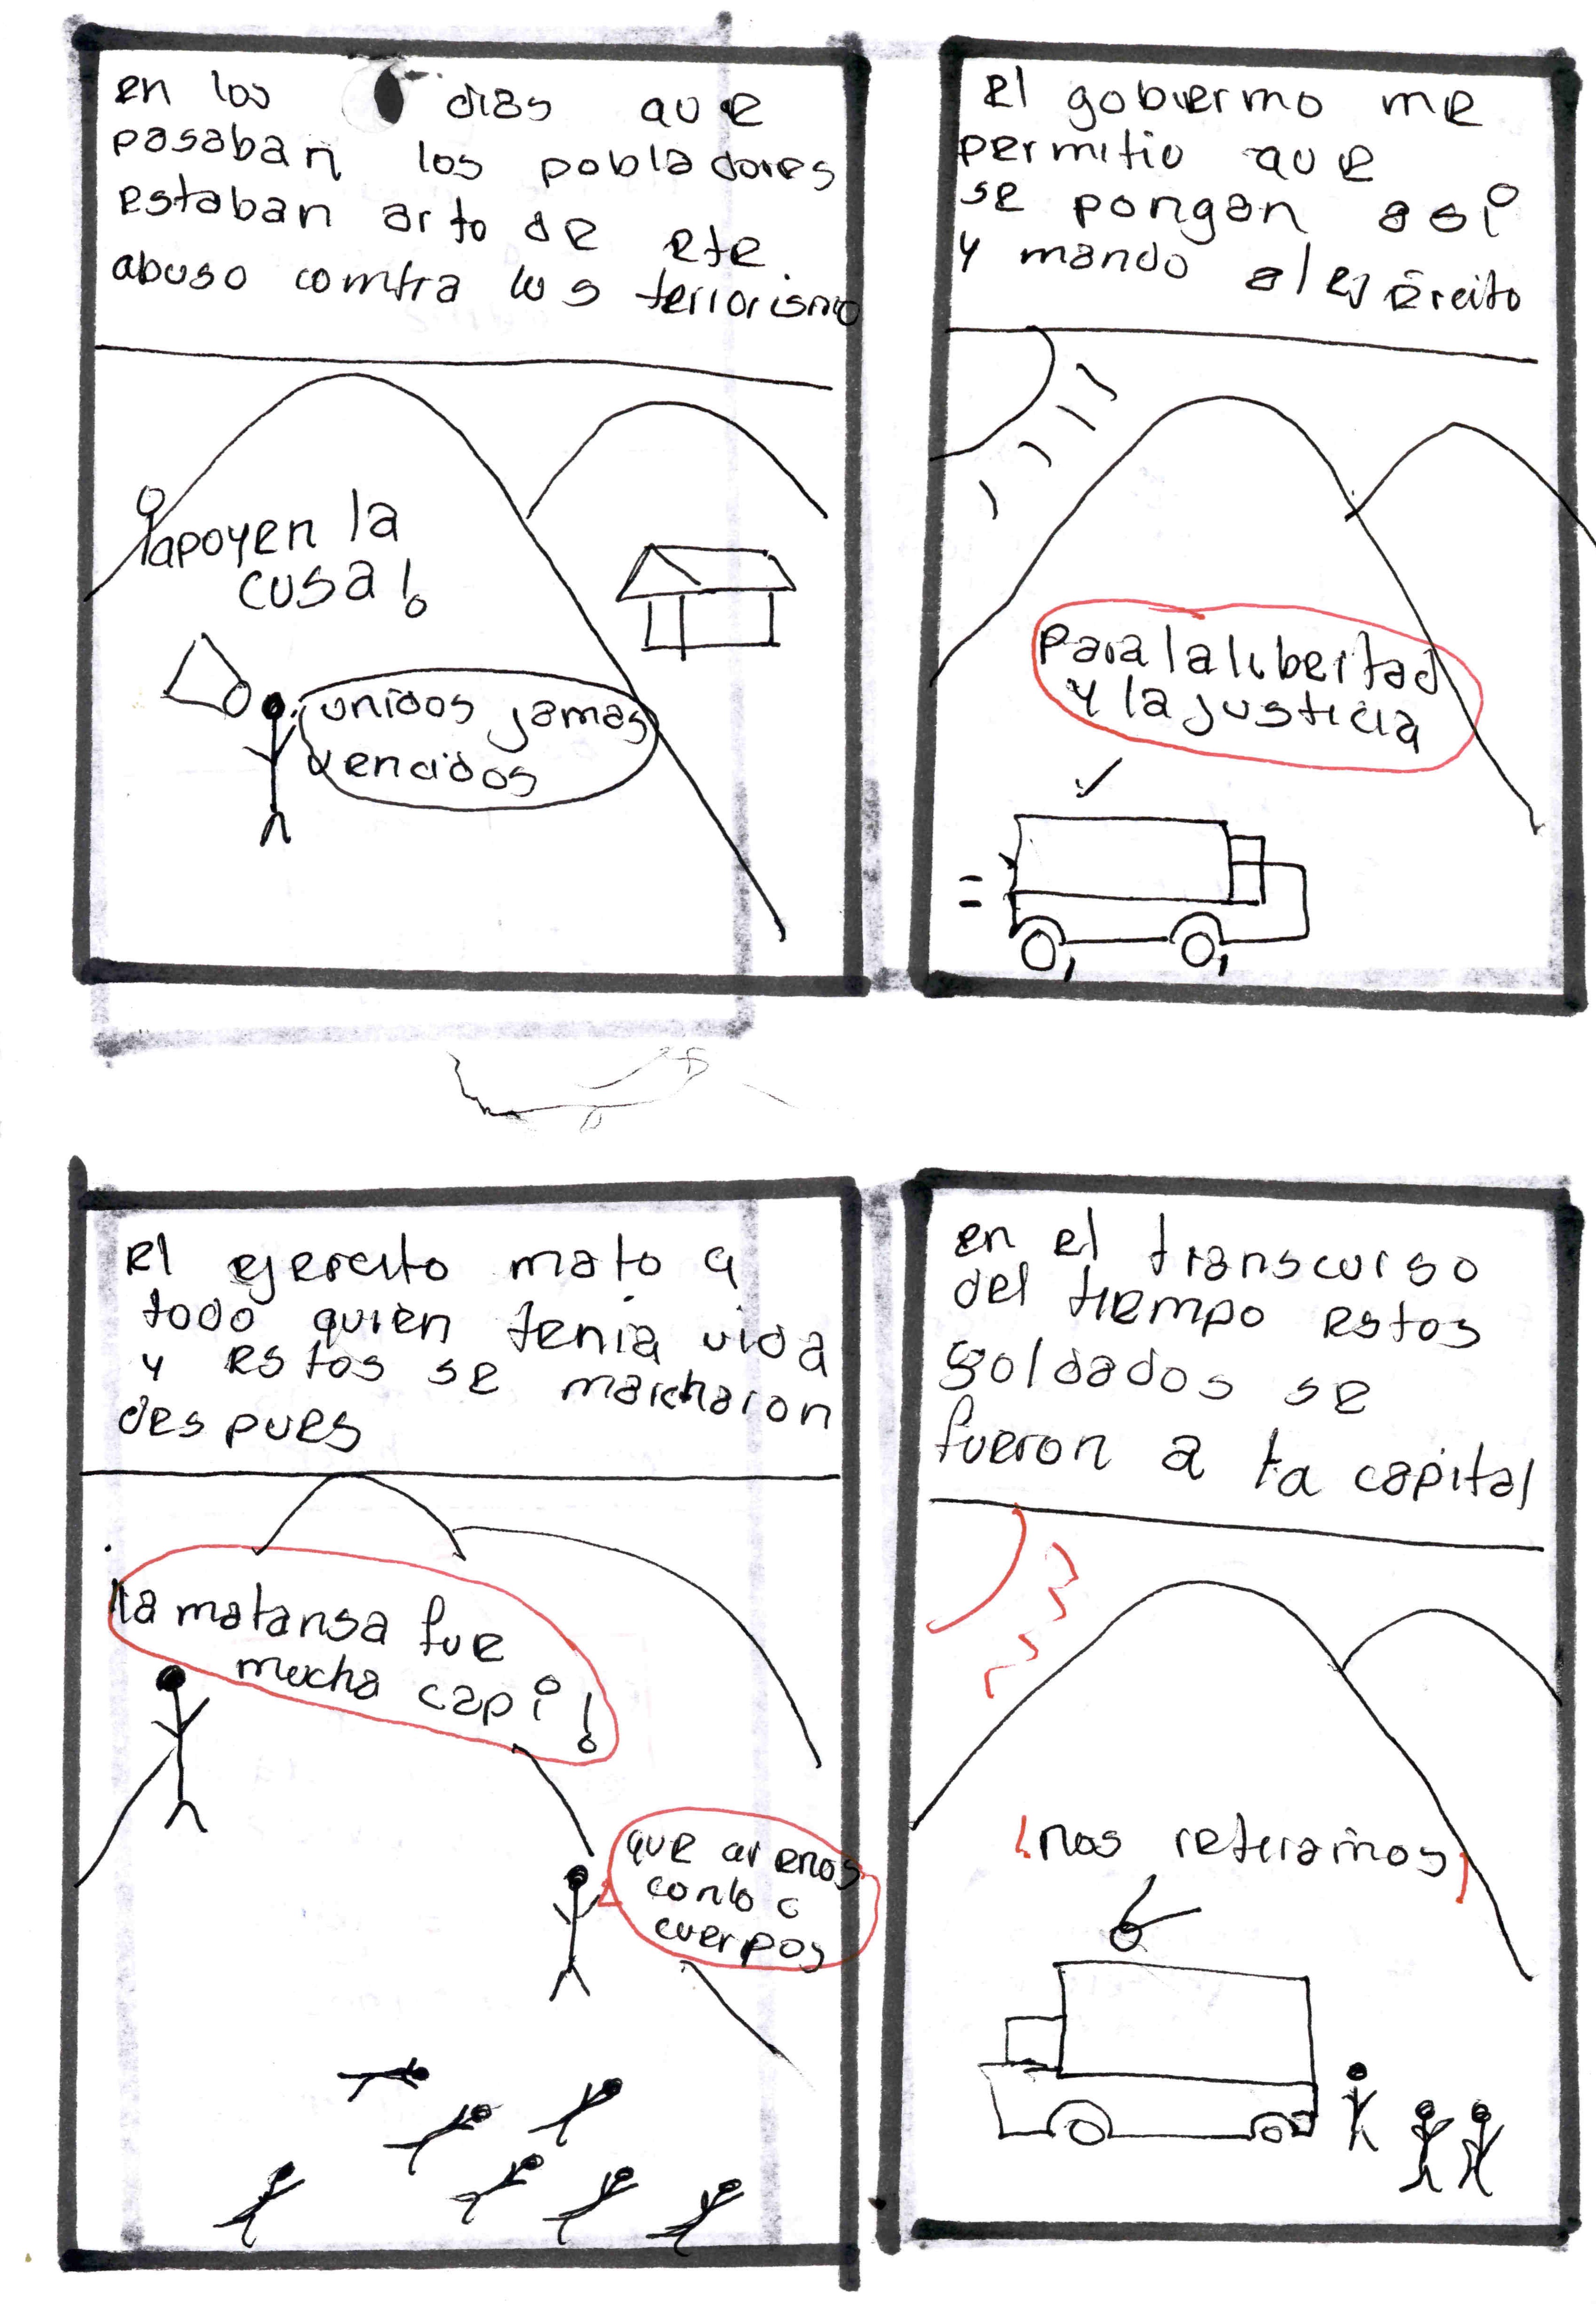 en los dias que
pasaban los pobladores
estaban arto de ete
abuso contra los terrorismo
¡apoyen la
cusa!
unidos jamas
vencidos
el gobierno me
permitio que
se pongan asi
y mando al ejercito
para la libertad
y la justicia
el ejercito mato a
todo quien tenia vida
y estos se marcharon
despues
la matansa fue
mucha capi!
que aremos
conlo
cuerpos
en el transcurso
del tiempo estos
soldados se
fueron a la capital
¡nos retiramos!